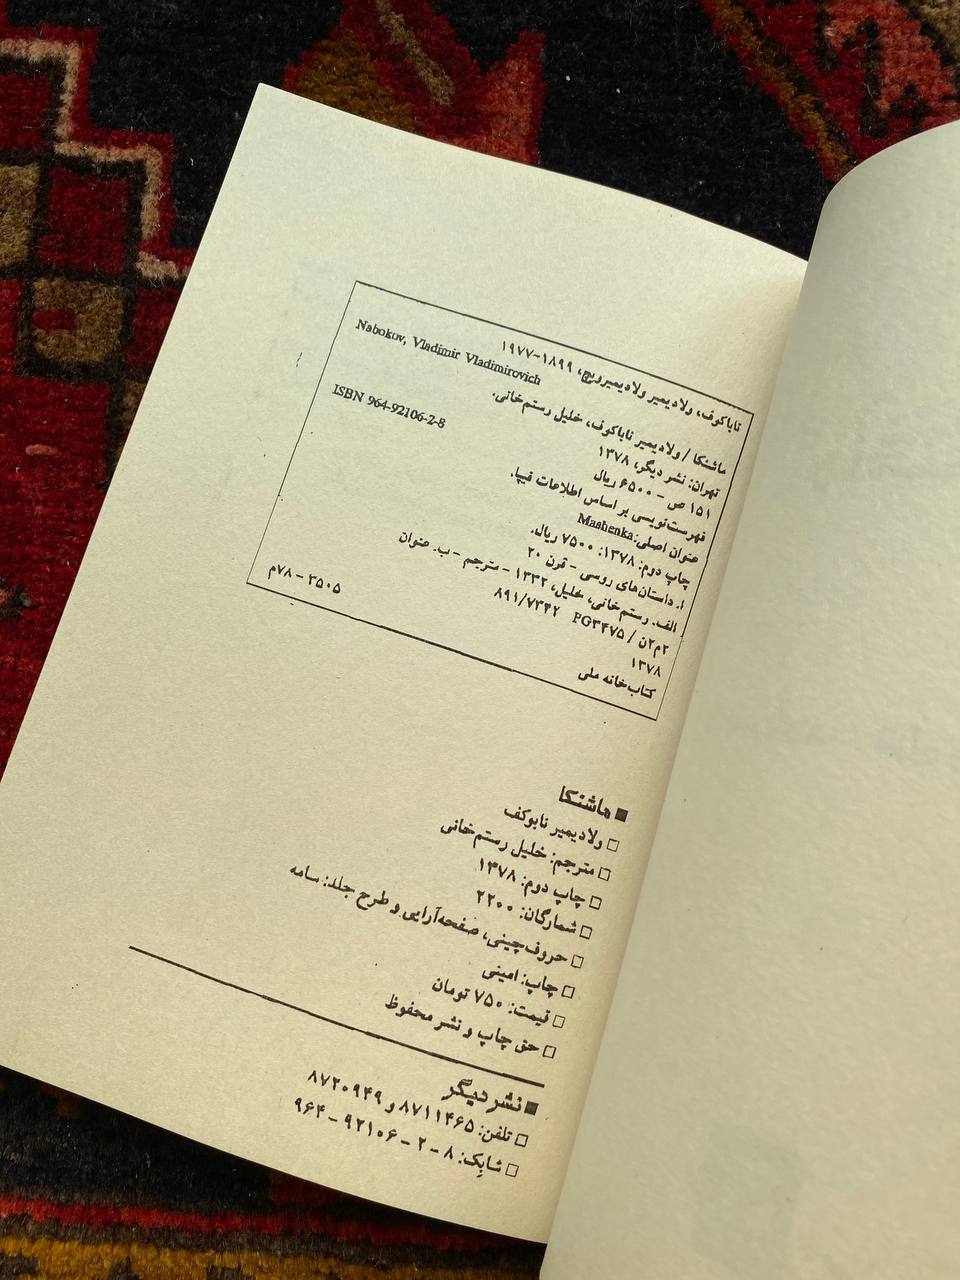 ناباکوف، ولادیمیر ولادیمیرویچ، ۱۸۹۹-۱۹۷۷
Nabokov, Vladimir Vladimirovich
ماشنکا / ولادیمیر ناباکوف، خلیل رستم‌خانی.
تهران: نشر دیگر، ۱۳۷۸
ISBN 964-92106-2-8
۱۵۱ ص - ۶۵۰۰ ریال
فهرست‌نویسی بر اساس اطلاعات فیپا.
عنوان اصلی: Mashenka
چاپ دوم: ۱۳۷۸: ۷۵۰۰ ریال.
۱. داستان‌های روسی - قرن ۲۰
الف. رستم‌خانی، خلیل، ۱۳۳۲ - مترجم - ب. عنوان
۲م۲ن / PG۳۴۷۵ ۸۹۱/۷۳۴۲
۱۳۷۸
کتاب‌خانه ملی
۳۵۰۵ - ۷۸م
■ ماشنکا
□ ولادیمیر نابوکف
□ مترجم: خلیل رستم‌خانی
□ چاپ دوم: ۱۳۷۸
□ شمارگان: ۲۲۰۰
□ حروف‌چینی، صفحه‌آرایی و طرح جلد: سامه
□ چاپ: امینی
□ قیمت: ۷۵۰ تومان
□ حق چاپ و نشر محفوظ
■ نشر دیگر
□ تلفن: ۸۷۱۱۴۶۵ و ۸۷۲۰۹۴۹
□ شابِک: ۸ - ۲ - ۹۲۱۰۶ - ۹۶۴